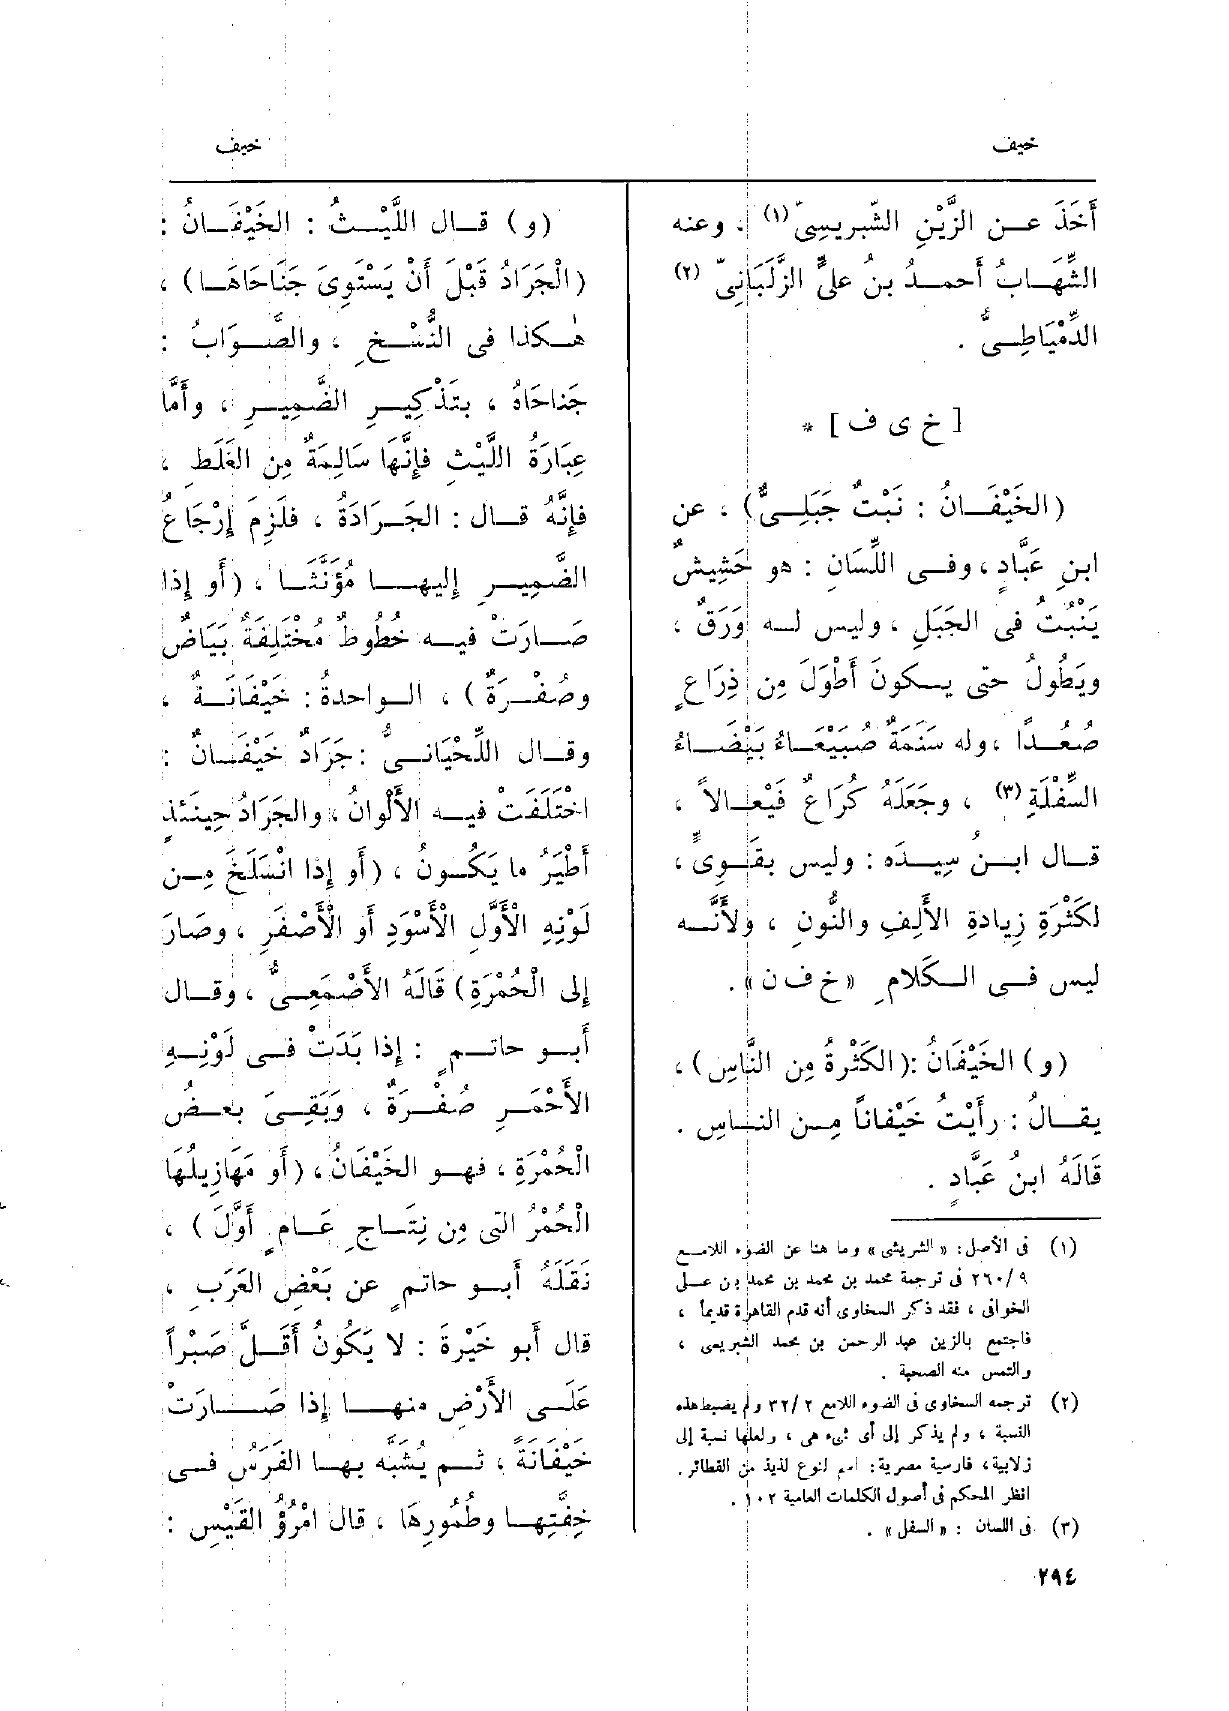 خيف
خيف
أَخَذَ عن الزَّيْنِ الشّبريسِىّ (١) ، وعنه
الشِّهَابُ أحمدُ بنُ علىٍّ الزَّلَبَانِىّ (٢)
الدِّمْيَاطِىُّ .
[ خ ى ف ] *
(الخَيْفَانُ : نَبْتٌ جَبَلِىٌّ) ، عن
ابنِ عَبَّادٍ ، وفى اللِّسَان : هو حَشِيشٌ
يَنْبُتُ فى الجَبَلِ ، وليس له وَرَقٌ ،
ويَطُولُ حتى يكونَ أَطْوَلَ مِن ذِرَاعٍ
صُعُدًا ، وله سَنَمَةٌ صُبَيْغَاءُ بَيْضَاءُ
السِّفْلَةِ (٣) ، وجَعَلَهُ كُرَاعٌ فَيْعَالاً ،
قال ابنُ سِيدَه : وليس بقَوِىٍّ ،
لكَثْرَةِ زِيادةِ الأَلِفِ والنُّونِ ، ولأَنَّه
ليس فى الكَلامِ «خ ف ن» .
(و) الخَيْفَانُ : (الكَثْرةُ مِن النَّاسِ) ،
يقالُ : رأَيْتُ خَيْفاناً مِن الناسِ .
قَالَهُ ابنُ عَبَّادٍ .
(١) فى الأصل : « الشريشى » وما هنا عن الضوء اللامع
٩/٢٦٠ فى ترجمة محمد بن محمد بن محمد بن على
الخوافى ، فقد ذكر السخاوى أنه قدم القاهرة قديماً ،
فاجتمع بالزين عبد الرحمن بن محمد الشبريسى ،
والتمس منه الصحبة .
(٢) ترجمه السخاوى فى الضوء اللامع ٢/٣٢ ولم يضبط هذه
النسبة ، ولم يذكر إلى أى شىء هى ، ولعلها نسبة إلى
زلابية ، فارسية مصرية : اسم لنوع لذيذ من الفطائر .
انظر المحكم فى أصول الكلمات العامية ١٠٢ .
(٣) فى اللسان : « السفل » .
٢٩٤
(و) قال اللَّيْثُ : الخَيْفَانُ :
(الْجَرَادُ قَبْلَ أَنْ يَسْتَوِىَ جَنَاحَاهَا) ،
هٰكذا فى النُّسْخِ ، والصَّوَابُ :
جَناحَاهُ ، بتَذْكِيرِ الضَّمِيرِ ، وأَمَّا
عِبَارَةُ اللَّيْثِ فإِنَّهَا سَالِمَةٌ مِن الغَلَطِ ،
فإِنَّهُ قال : الجَرادَةُ ، فلَزِمَ إِرْجَاعُ
الضَّمِيرِ إِليها مُؤَنَّثًا ، (أَو إِذا
صَارَتْ فيه خُطُوطٌ مُخْتَلِفَةٌ بَيَاضٌ
وصُفْرَةٌ) ، الواحدةُ : خَيْفَانَةٌ ،
وقال اللِّحْيَانىُّ : جَرَادٌ خَيْفَانٌ :
اخْتَلَفَتْ فيه الأَلْوانُ ، والجَرَادُ حِينَئذٍ
أَطْيَرُ ما يَكُونُ ، (أَو إِذا انْسَلَخَ مِن
لَوْنِهِ الْأَوَّلِ الْأَسْوَدِ أَو الْأَصْفَرِ ، وصَارَ
إِلى الْحُمْرَةِ) قَالَهُ الأَصْمَعِىُّ ، وقال
أَبو حاتمٍ : إِذا بَدَتْ فى لَوْنِهِ
الأَحْمَرِ صُفْرَةٌ ، وَبَقِىَ بعضُ
الْحُمْرَةِ ، فهو الخَيْفَانُ ، (أَو مَهَازِيلُهَا
الْحُمْرُ التى مِن نِتَاجِ عَامٍ أَوَّلَ) ،
نَقَلَهُ أَبو حاتمٍ عن بَعْضِ العَرَبِ ،
قال أَبو خَيْرَةَ : لا يَكُونُ أَقَلَّ صَبْراً
عَلَى الأَرْضِ منها إِذا صَارَتْ
خَيْفَانَةً ، ثم يُشَبَّه بها الفَرَسُ فى
خِفَّتِها وطُمُورِهَا ، قال امْرُؤُ القَيْسِ :